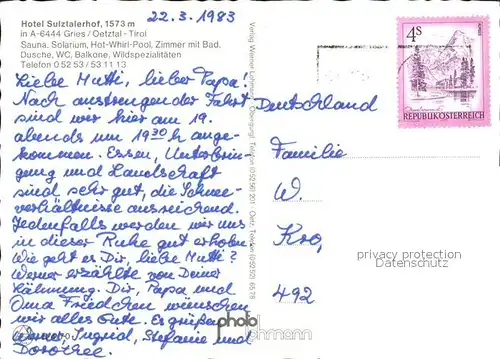 22.3.1983
Hotel Sulztalerhof, 1573 m
in A-6444 Gries / Oetztal - Tirol
Sauna, Solarium, Hot-Whirl-Pool, Zimmer mit Bad,
Dusche, WC, Balkone, Wildspezialitäten
Telefon 0 52 53 / 53 11 13
Liebe Mutti, lieber Papa!
Nach anstrengender Fahrt
sind wir hier am 19.
abends um 19³⁰h ange-
kommen. Essen, Unterbrin-
gung und Landschaft
sind sehr gut, die Schnee-
verhältnisse ausreichend.
Jedenfalls werden wir uns
in dieser Ruhe gut erholen.
Wie geht es Dir, liebe Mutti?
Werner erzählte von Deiner
Lähmung. Dir, Papa und
Oma Friedchen wünschen
wir alles Gute. Es grüßen
Werner, Ingrid, Stefanie und
Dorothee.
Verlag Werner
4 S
REPUBLIK ÖSTERREICH
Deutschland
Familie
W.
Kro,
492
privacy protection
Datenschutz
photo